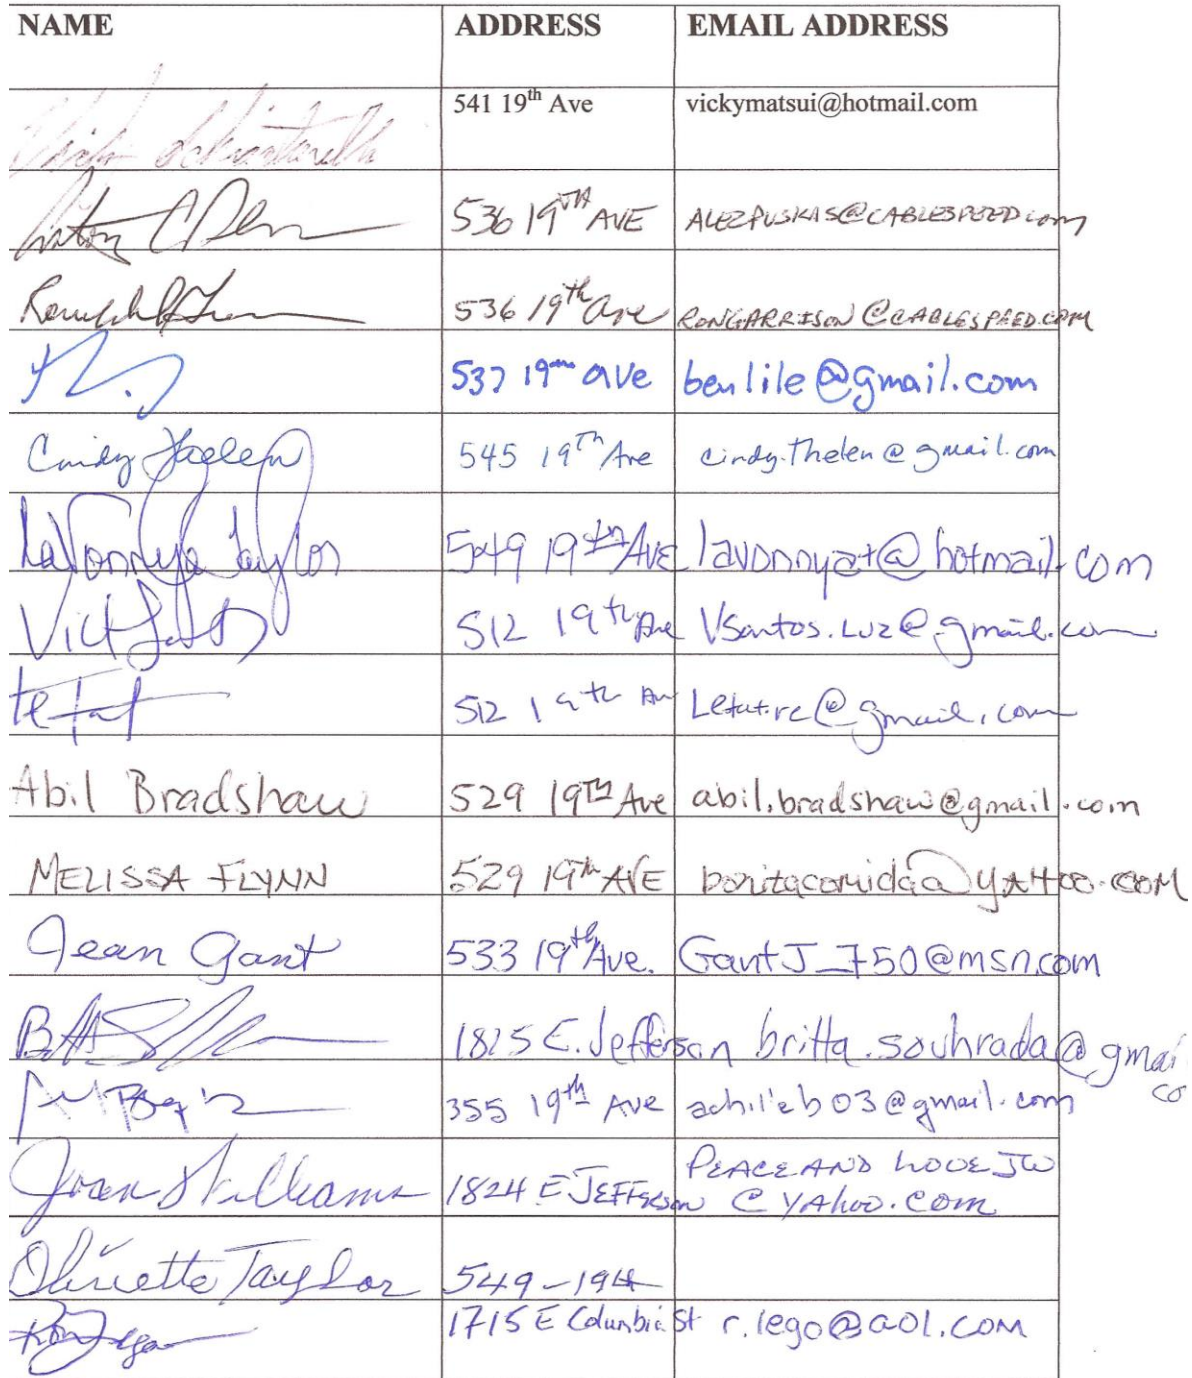 NAME ADDRESS EMAIL ADDRESS
541 19th Ave vickymatsui@hotmail.com
536 19TH AVE ALEZPUSKAS@CABLESPEED.com
536 19th Ave RONGARRISON@CABLESPEED.COM
537 19th ave benlile@gmail.com
Cindy Thelen 545 19Th Ave cindy.thelen@gmail.com
LaVonnya Taylor 549 19th AVE lavonnyat@hotmail.com
512 19th Ave VSantos.Luz@gmail.com
512 19th Av Letat.rc@gmail.com
Abil Bradshaw 529 19TH Ave abil.bradshaw@gmail.com
MELISSA FLYNN 529 19th AVE bonitacomida@YAHOO.COM
Jean Gant 533 19th Ave. GantJ_750@msn.com
1825 E. Jefferson britta.souhrada@gmai
co
355 19th Ave achilleb03@gmail.com
Joan Williams 1824 E JEFFERSON PEACE AND LOVE JW
@ YAHOO.COM
Olivette Taylor 549-19th
1715 E Columbia St r.lego@aol.com